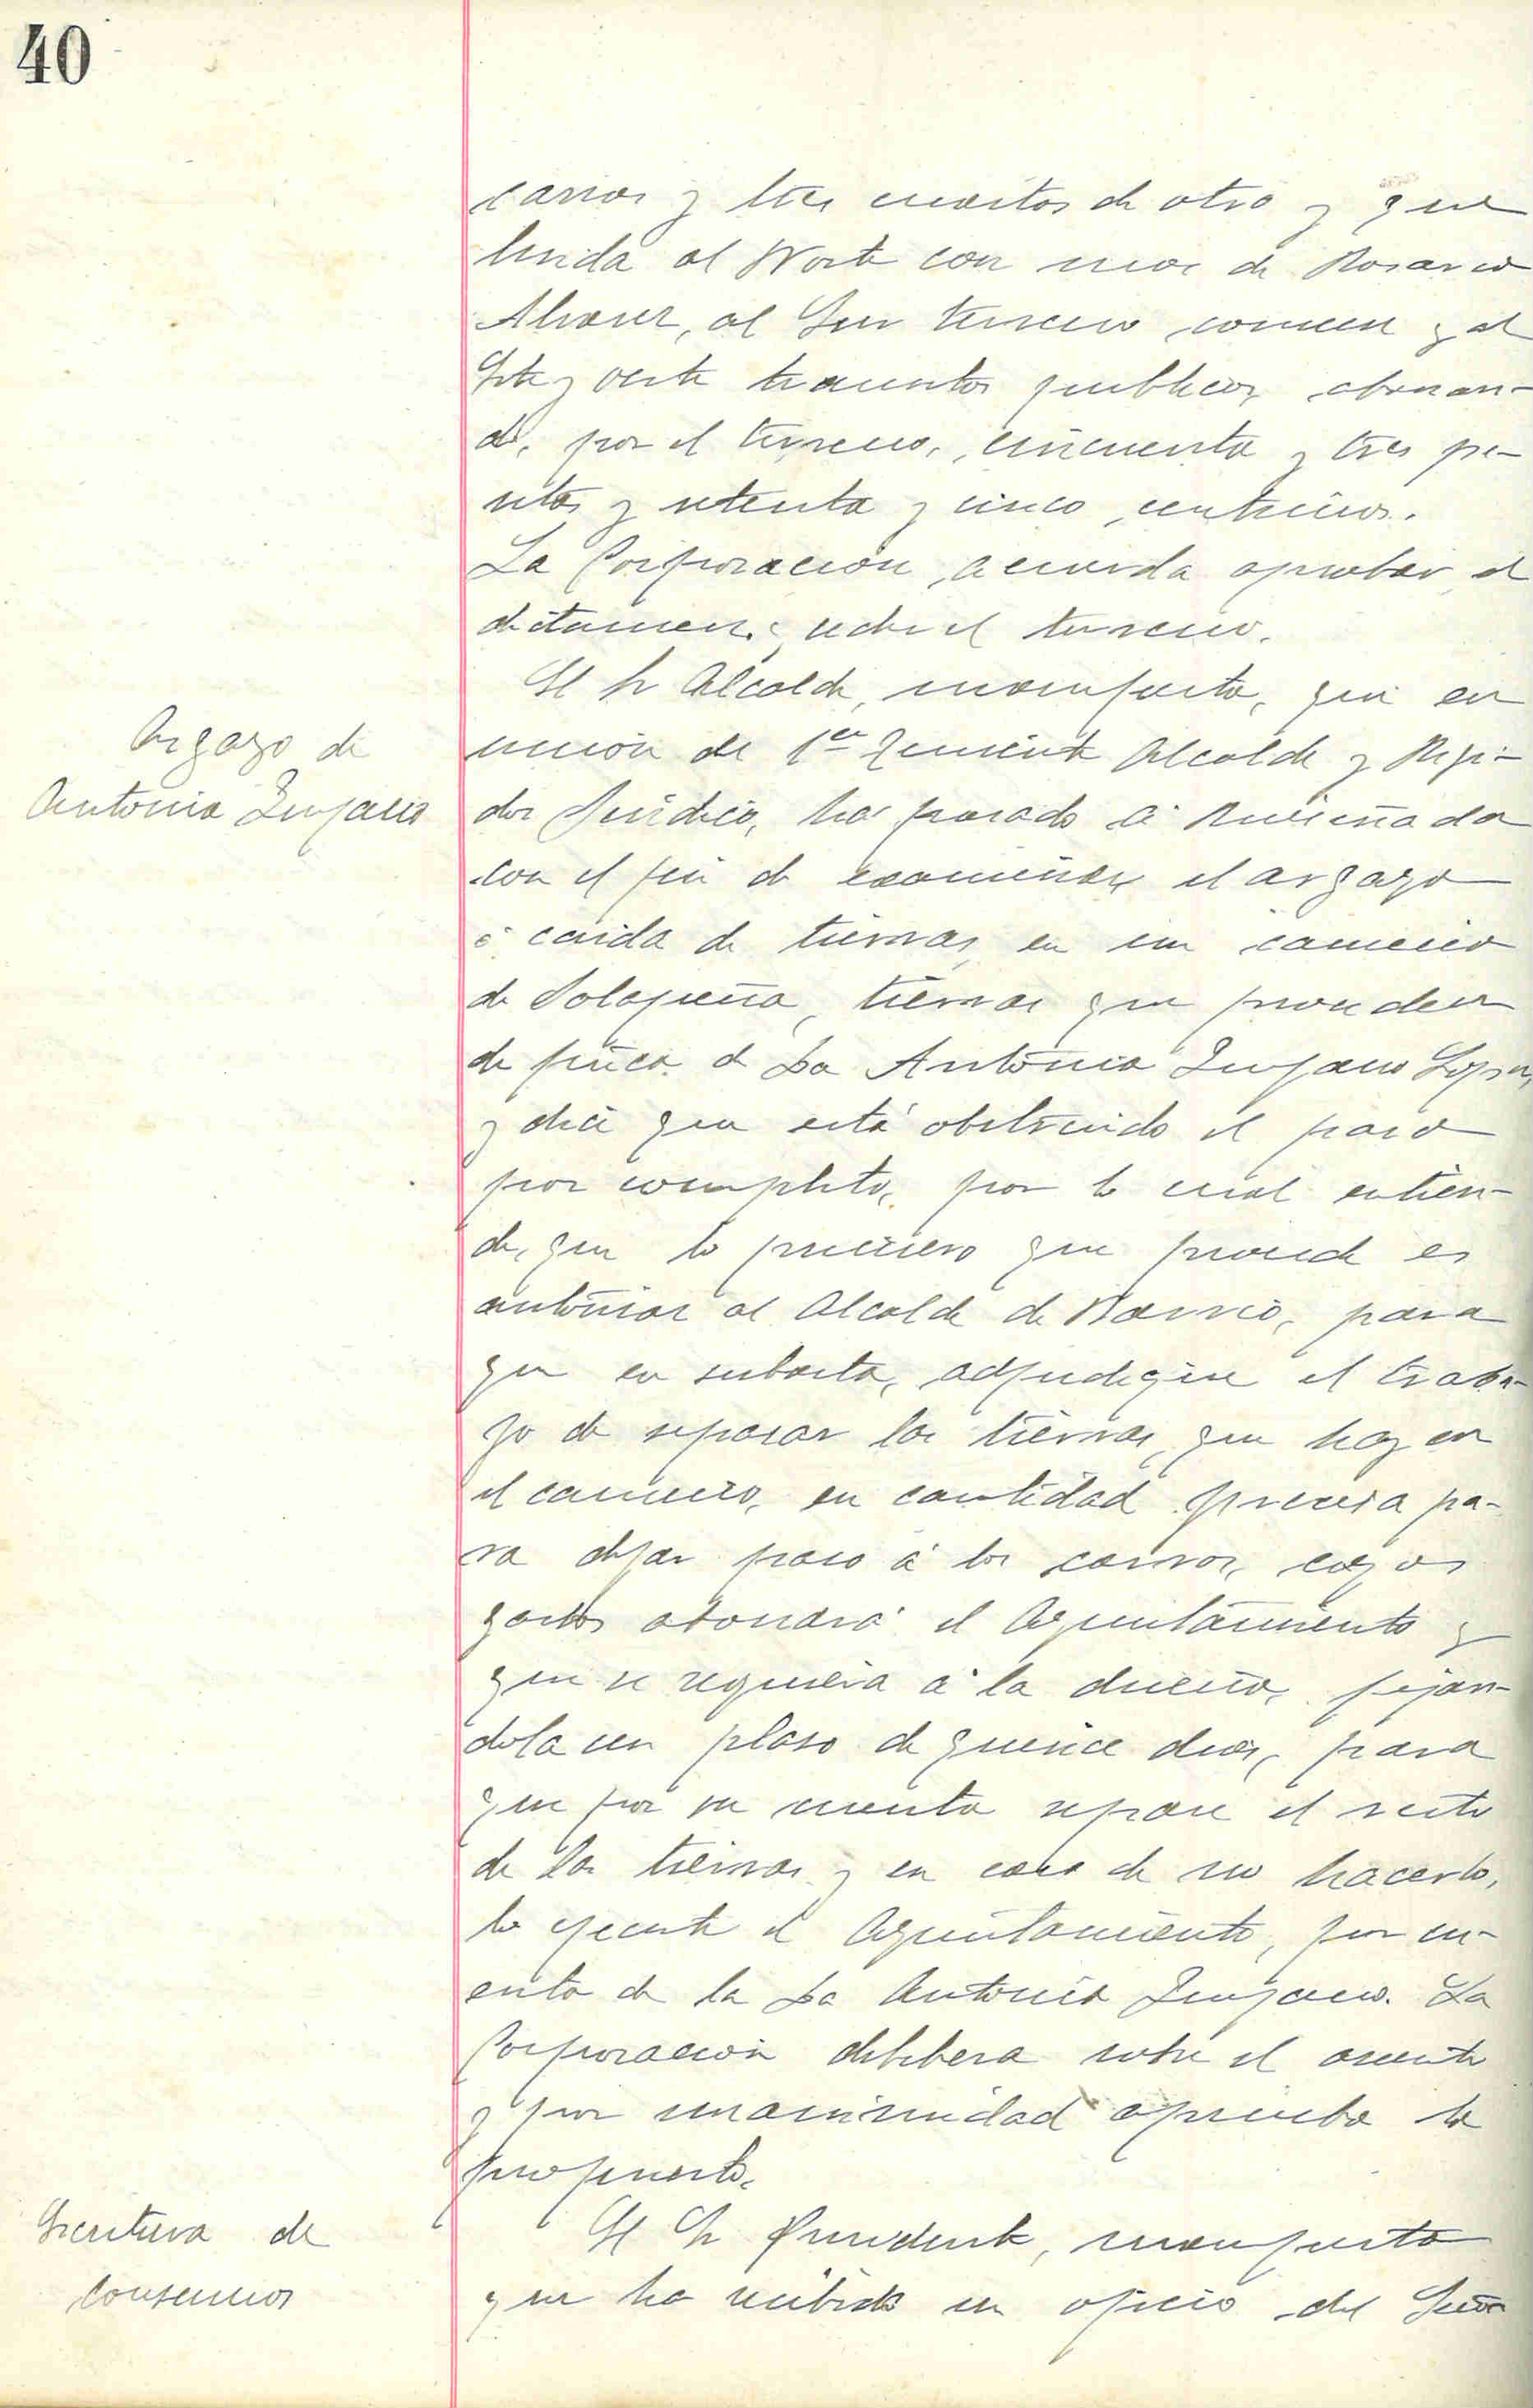 40
carros y tres cuartos de otro y que
linda al Norte con mas de Rosario
Alvarez, al Sur terreno comun y al
Este y Oeste transitos publicos, abonan-
do, por el terreno, cincuenta y tres pe-
setas y setenta y cinco centimos.
La Corporación, acuerda aprobar el
dictamen y ceder el terreno.
El Sr Alcalde, manifiesta, que en
Argayo de
Antonia
unión de 1er Teniente Alcalde y Regi-
dor Sindico, ha pasado á Ruiseñada
con el fin de examinar el argayo
ó caida de tierras, en un camino
de Solapeña, tierras que proceden
de finca de Da Antonia Lopez,
y dice que está obstruido el paso
por completo, por lo cual entien-
de, que lo primero que procede es
autorizar al Alcalde de Barrio, para
que en subasta, adjudique el traba-
jo de separar las tierras, que hay en
el camino, en cantidad precisa pa-
ra dejar paso á los carros, cuyos
gastos abonará el Ayuntamiento y
que se requiera á la dueña, fijan-
dola un plaso de quince dias, para
que por su cuenta separe el resto
de las tierras y en caso de no hacerlo,
lo ejecute el Ayuntamiento, por cu-
enta de la Da Antonia La
Corporación delibera sobre el asunto
y por unanimidad aprueba lo
propuesto.
Escritura de
Consumos
El Sr Presidente, manifiesta
que ha recibido un oficio del Señor